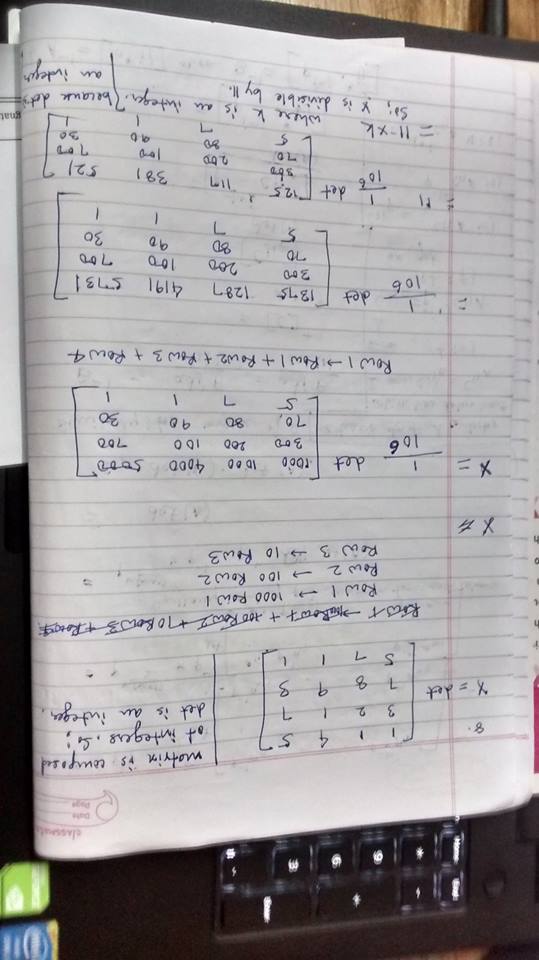 classmate
Date
Page
8.
matrix is composed
of integers. So;
det is an integer.
X = det
1 1 4 5
3 2 1 7
7 8 9 3
5 7 1 1
Row 1 → 1000 Row 1
Row 2 → 100 Row 2
Row 3 → 10 Row 3
X =
X = 1/10⁶ det
1000 1000 4000 5000
300 200 100 700
70 80 90 30
5 7 1 1
Row 1 → Row 1 + Row 2 + Row 3 + Row 4
= 1/10⁶ det
1375 1287 4191 5731
300 200 100 700
70 80 90 30
5 7 1 1
= 11 1/10⁶ det
125 117 381 521
300 200 100 700
70 80 90 30
5 7 1 1
= 11 × k where k is an integer. } because det is
an integer
So; X is divisible by 11.
Home
End
Enter
9
6
3
*